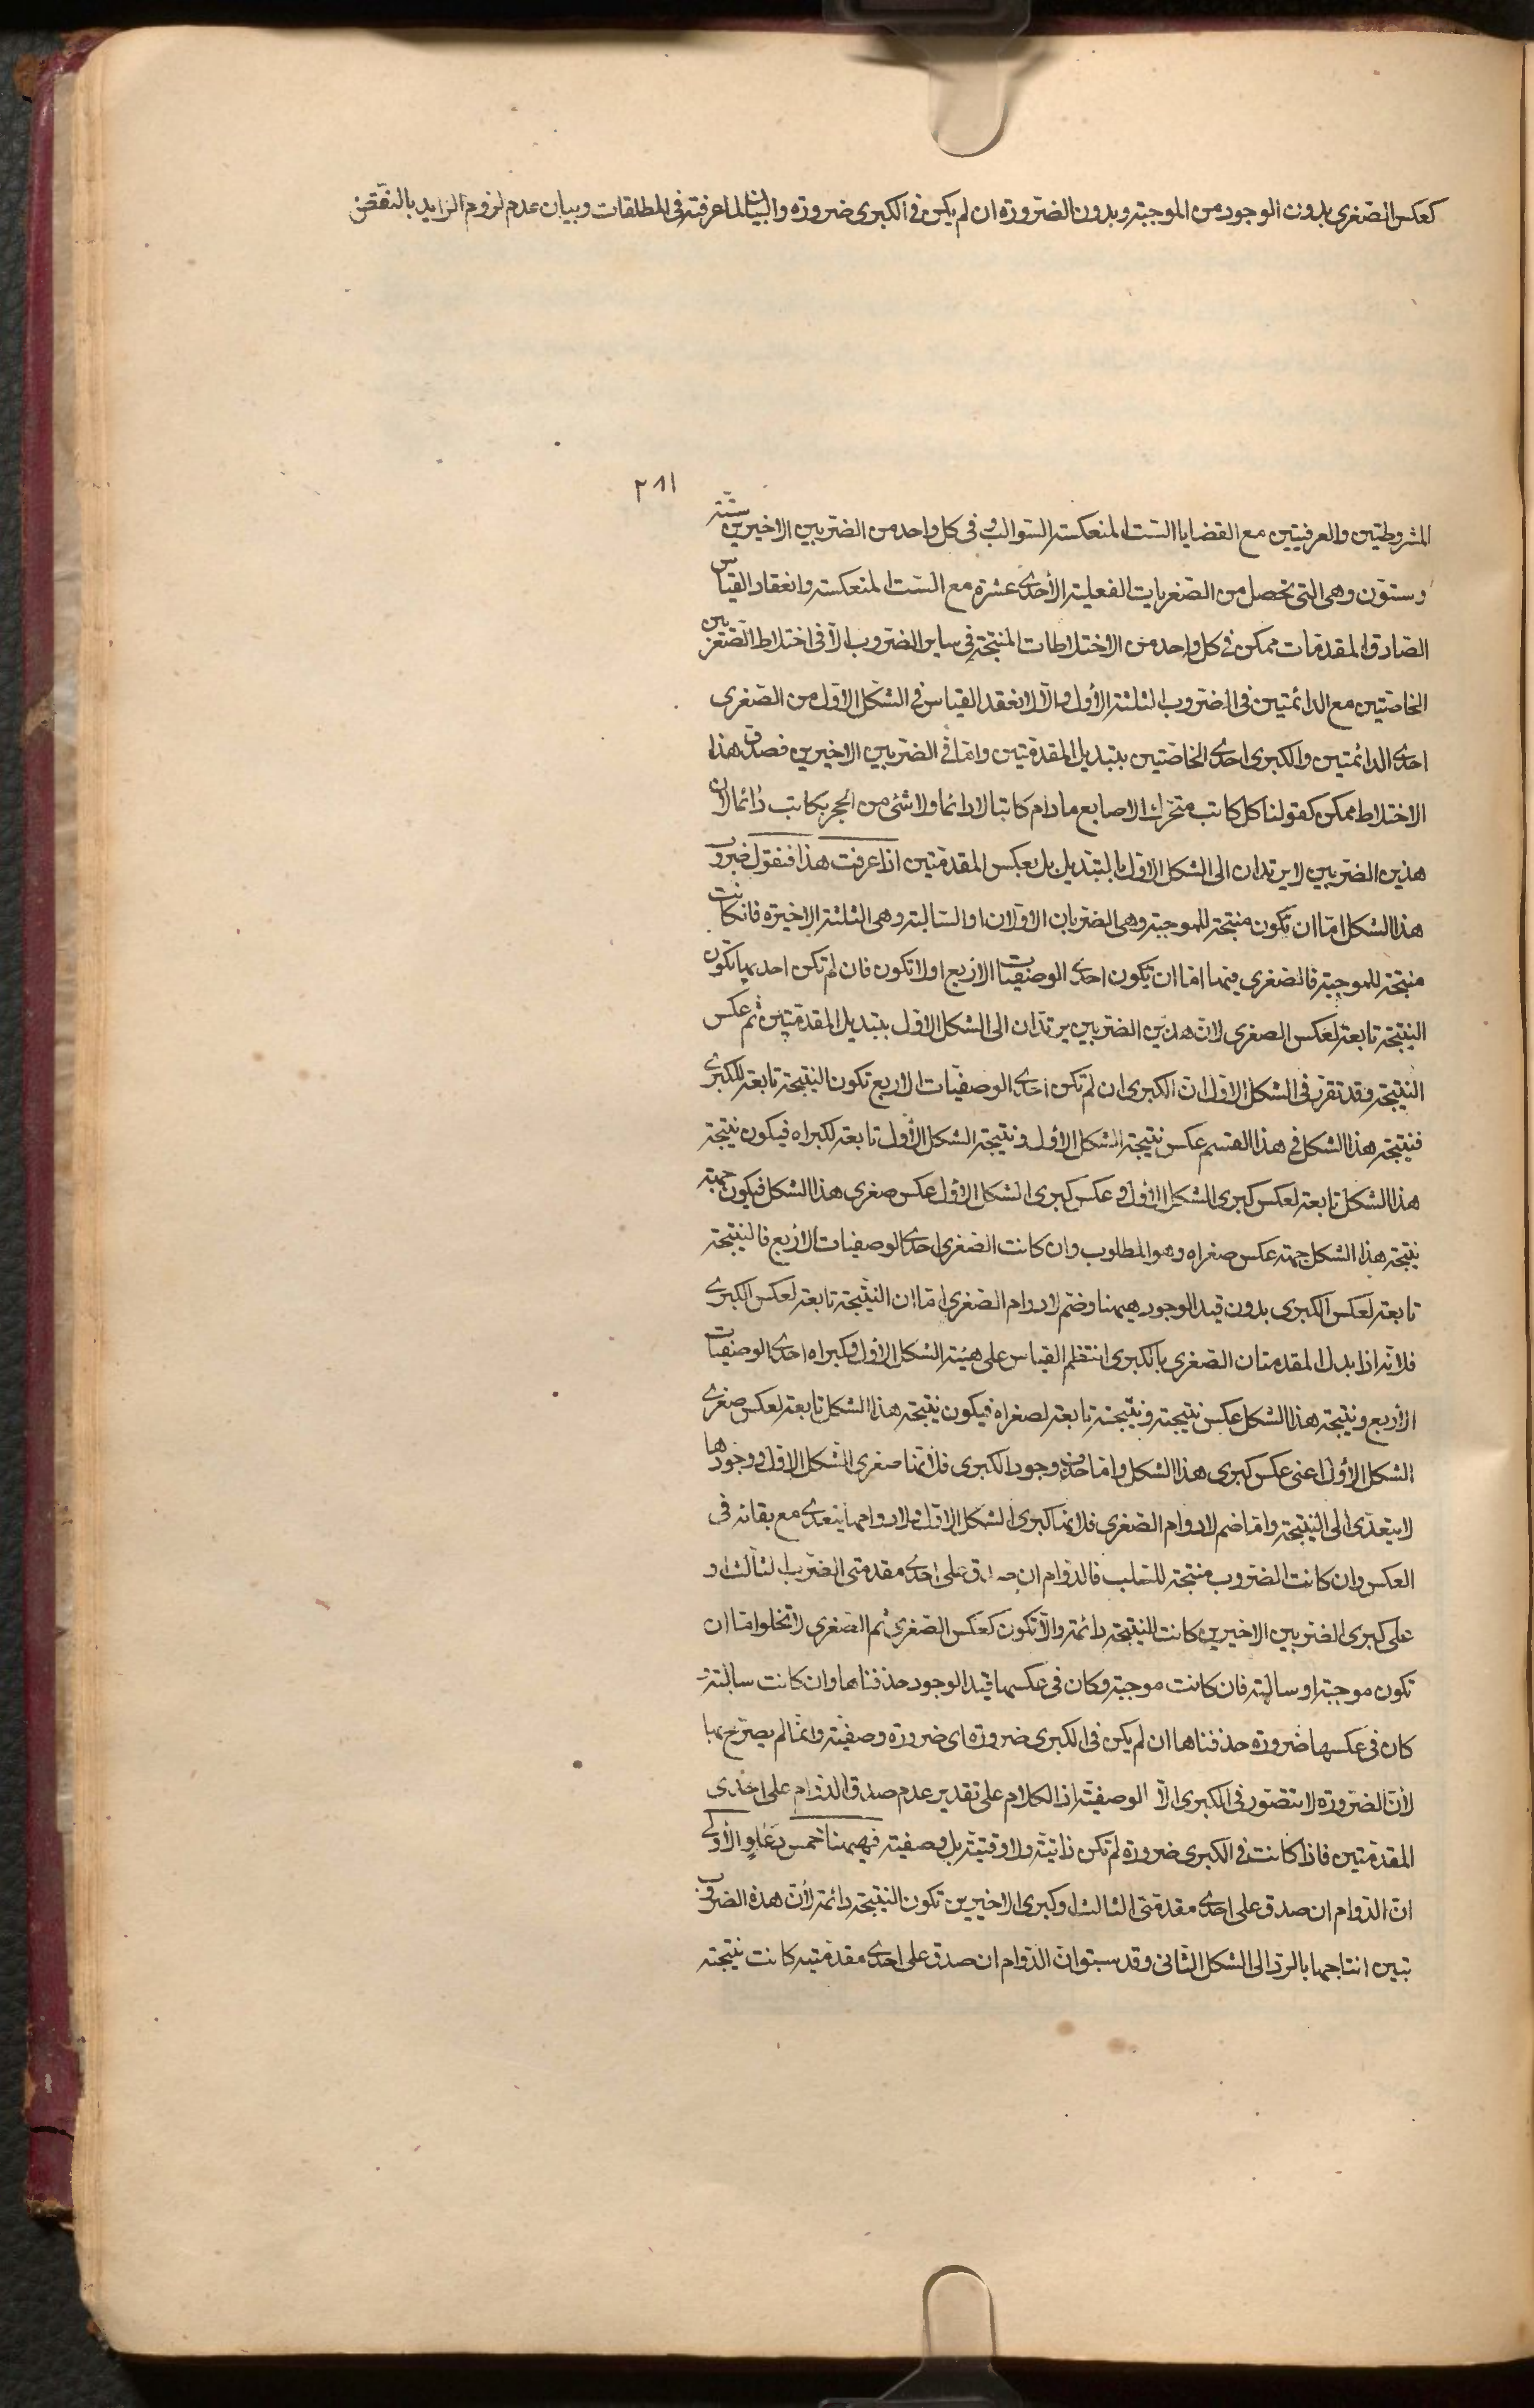 كعكس الصغرى بدون الوجود من الموجبة وبدون الضرورة ان لم يكن فى الكبرى ضرورة والبيان لما عرفته فى المطلقات وبيان عدم لزوم الزايد بالنقض
٢٨١
المشروطتين والعرفيتين مع القضايا الست المنعكسة السوالب وفى كل واحد من الضربين الاخيرين ستة
وستون وهى التى تحصل من الصغريات الفعلية الأحدى عشرة مع الست المنعكسة وانعقاد القياس
الصادق المقدمات ممكن فى كل واحد من الاختلاطات المنتجة فى ساير الضروب الا فى اختلاط الصغريين
الخاصتين مع الدائمتين فى الضروب الثلثة الأول والا لانعقد القياس فى الشكل الاول من الصغرى
احدى الدائمتين والكبرى احدى الخاصتين بتبديل المقدمتين واما فى الضربين الاخيرين فصدق هذا
الاختلاط ممكن كقولنا كل كاتب متحرك الاصابع مادام كاتبا لادائما ولا شئ من الحجر بكاتب دائما لان
هذين الضربين لايرتدان الى الشكل الاول بالتبديل بل بعكس المقدمتين اذا عرفت هذا فنقول ضروب
هذا الشكل اما ان تكون منتجة للموجبة وهى الضربان الاولان او السالبة وهى الثلثة الاخيرة فان كانت
منتجة للموجبة فالصغرى فيهما اما ان تكون احدى الوصفيات الاربع اولا تكون فان لم تكن احديها تكون
النتيجة تابعة لعكس الصغرى لان هذين الضربين يرتدان الى الشكل الاول بتبديل المقدمتين ثم عكس
النتيجة وقد تقرر فى الشكل الاول ان الكبرى ان لم تكن احدى الوصفيات الاربع تكون النتيجة تابعة للكبرى
فنتيجة هذا الشكل فى هذا القسم عكس نتيجة الشكل الأول ونتيجة الشكل الأول تابعة لكبراه فيكون نتيجة
هذا الشكل تابعة لعكس كبرى الشكل الأول وعكس كبرى الشكل الأول عكس صغرى هذا الشكل فيكون جهة
نتيجة هذا الشكل جهة عكس صغراه وهو المطلوب وان كانت الصغرى احدى الوصفيات الأربع فالنتيجة
تابعة لعكس الكبرى بدون قيد الوجود هيهنا وضم لادوام الصغرى اما ان النتيجة تابعة لعكس الكبرى
فلانه اذا بدل المقدمتان الصغرى بالكبرى انتظم القياس على هيئة الشكل الأول وكبراه احدى الوصفيات
الأربع ونتيجة هذا الشكل عكس نتيجته ونتيجته تابعة لصغراه فيكون نتيجة هذا الشكل تابعة لعكس صغرى
الشكل الأول اعنى عكس كبرى هذا الشكل واما حذف وجود الكبرى فلانها صغرى الشكل الاول ووجودها
لايتعدى الى النتيجة واما ضم لادوام الصغرى فلانها كبرى الشكل الاول ولادوامها يتعدى مع بقائه فى
العكس وان كانت الضروب منتجة للسلب فالدوام ان صدق على احدى مقدمتى الضرب الثالث او
على كبرى الضربين الاخيرين كانت النتيجة دائمة والا تكون كعكس الصغرى ثم الصغرى لاتخلوا اما ان
تكون موجبة او سالبة فان كانت موجبة وكان فى عكسها قيد الوجود حذفناها وان كانت سالبة
كان فى عكسها ضرورة حذفناها ان لم يكن فى الكبرى ضرورة اى ضرورة وصفية وانما لم يصرح بها
لأن الضرورة لا تتصور فى الكبرى الا الوصفية اذ الكلام على تقدير عدم صدق الدوام على احدى
المقدمتين فاذا كانت فى الكبرى ضرورة لم تكن ذاتية ولا وقتية بل وصفية فهيهنا خمس دعاو الأولى
ان الدوام ان صدق على احدى مقدمتى الثالث او كبرى الاخيرين تكون النتيجة دائمة لأن هذه الضروب
تبين انتاجها بالرد الى الشكل الثانى وقد سبق ان الدوام ان صدق على احدى مقدمتيه كانت نتيجته